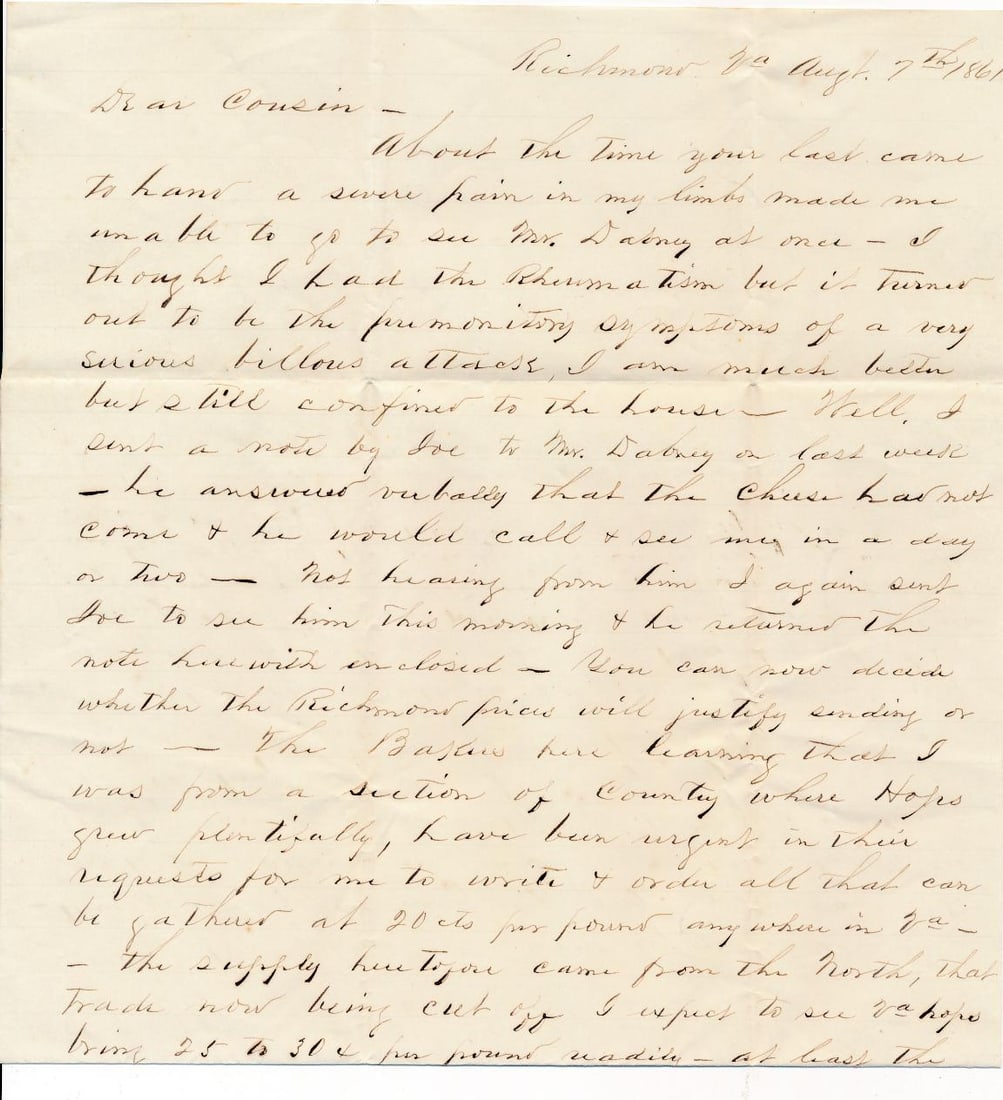 Richmond Va Augt. 7th 1861
Dear Cousin —
About the time your last came
to hand a severe pain in my limbs made me
unable to go to see Mr. Dabney at once — I
thought I had the Rheumatism but it turned
out to be the premonitory symptoms of a very
serious billous attack, I am much better
but still confined to the house — Well, I
sent a note by Joe to Mr. Dabney on last week
— he answered verbally that the Cheese had not
come & he would call & see me in a day
or two — Not hearing from him I again sent
Joe to see him this morning & he returned the
note herewith enclosed — You can now decide
whether the Richmond prices will justify sending or
not — The Bakers here learning that I
was from a section of Country where Hops
grew plentifully, have been urgent in their
requests for me to write & order all that can
be gathered at 20 cts per pound anywhere in Va —
— the supply heretofore came from the North, that
trade now being cut off I expect to see Va hops
bring 25 to 30 ¢ per pound readily — at least the